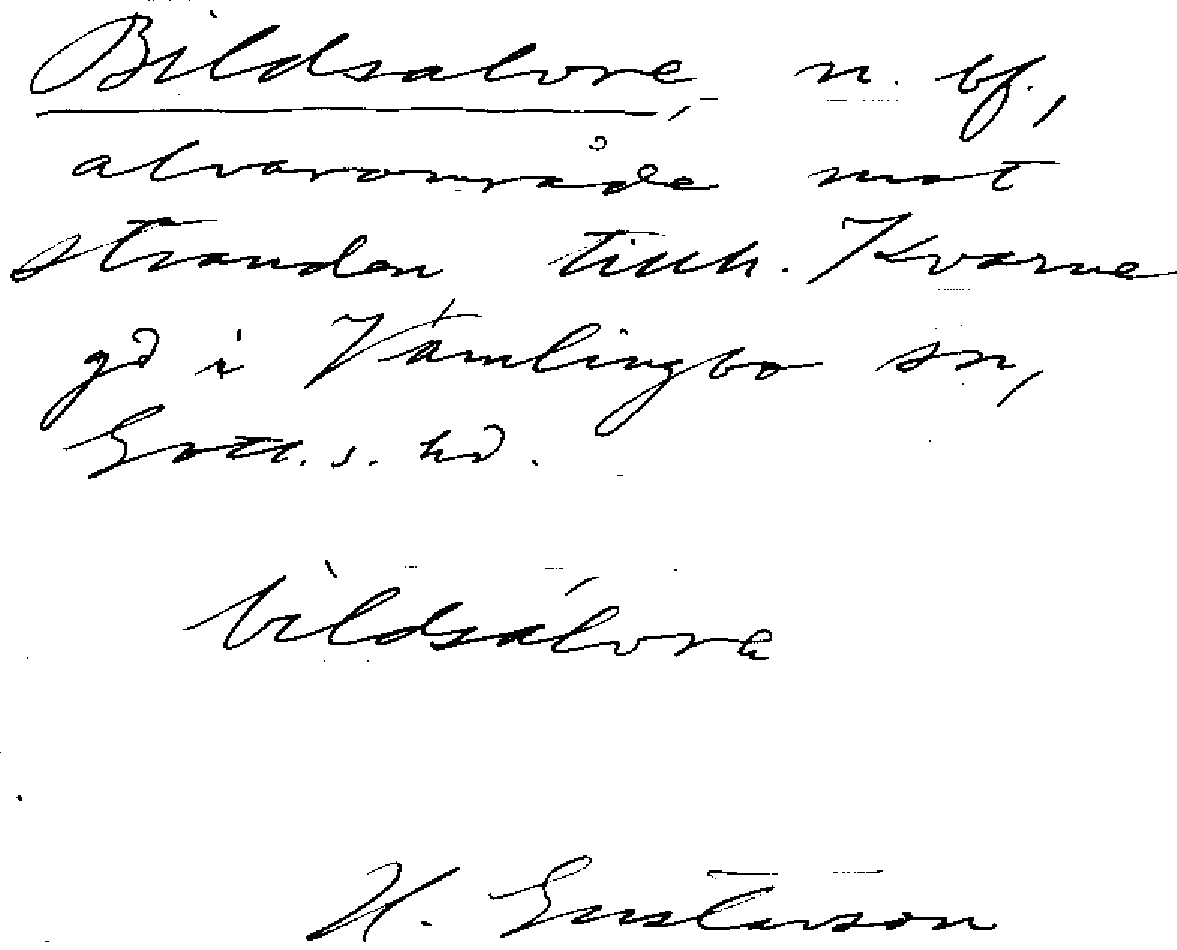 Bildsalvre, n. bf.,
alvarområde mot
stranden tillh. Kvarne
gd i Vamlingbo sn,
Gotl. s. hd.
bìldsálvrę
H. Gustavson